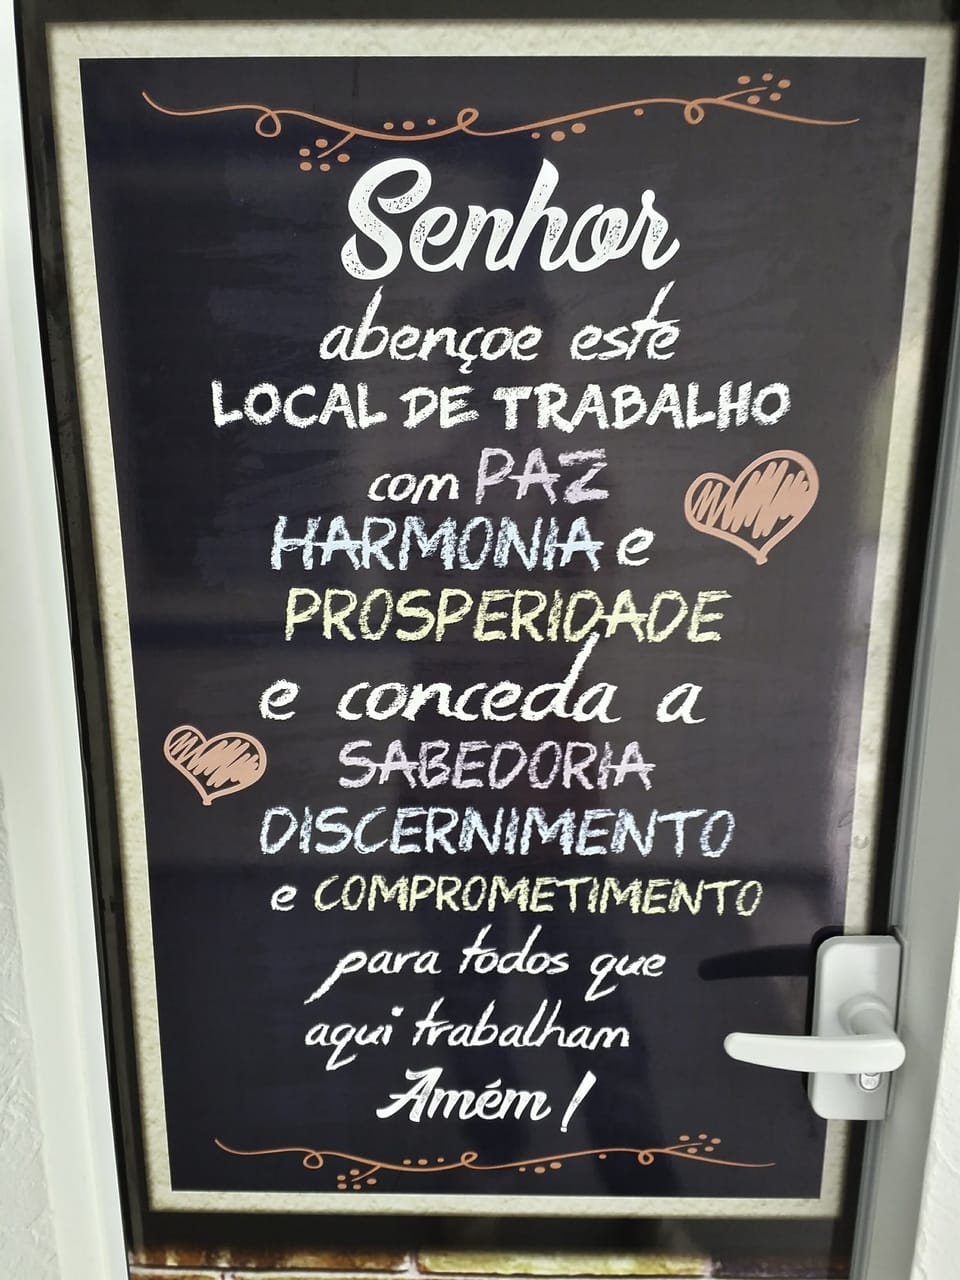 Senhor
abençoe este
LOCAL DE TRABALHO
com PAZ
HARMONIA e
PROSPERIDADE
e conceda a
SABEDORIA
DISCERNIMENTO
e COMPROMETIMENTO
para todos que
aqui trabalham
Amém !